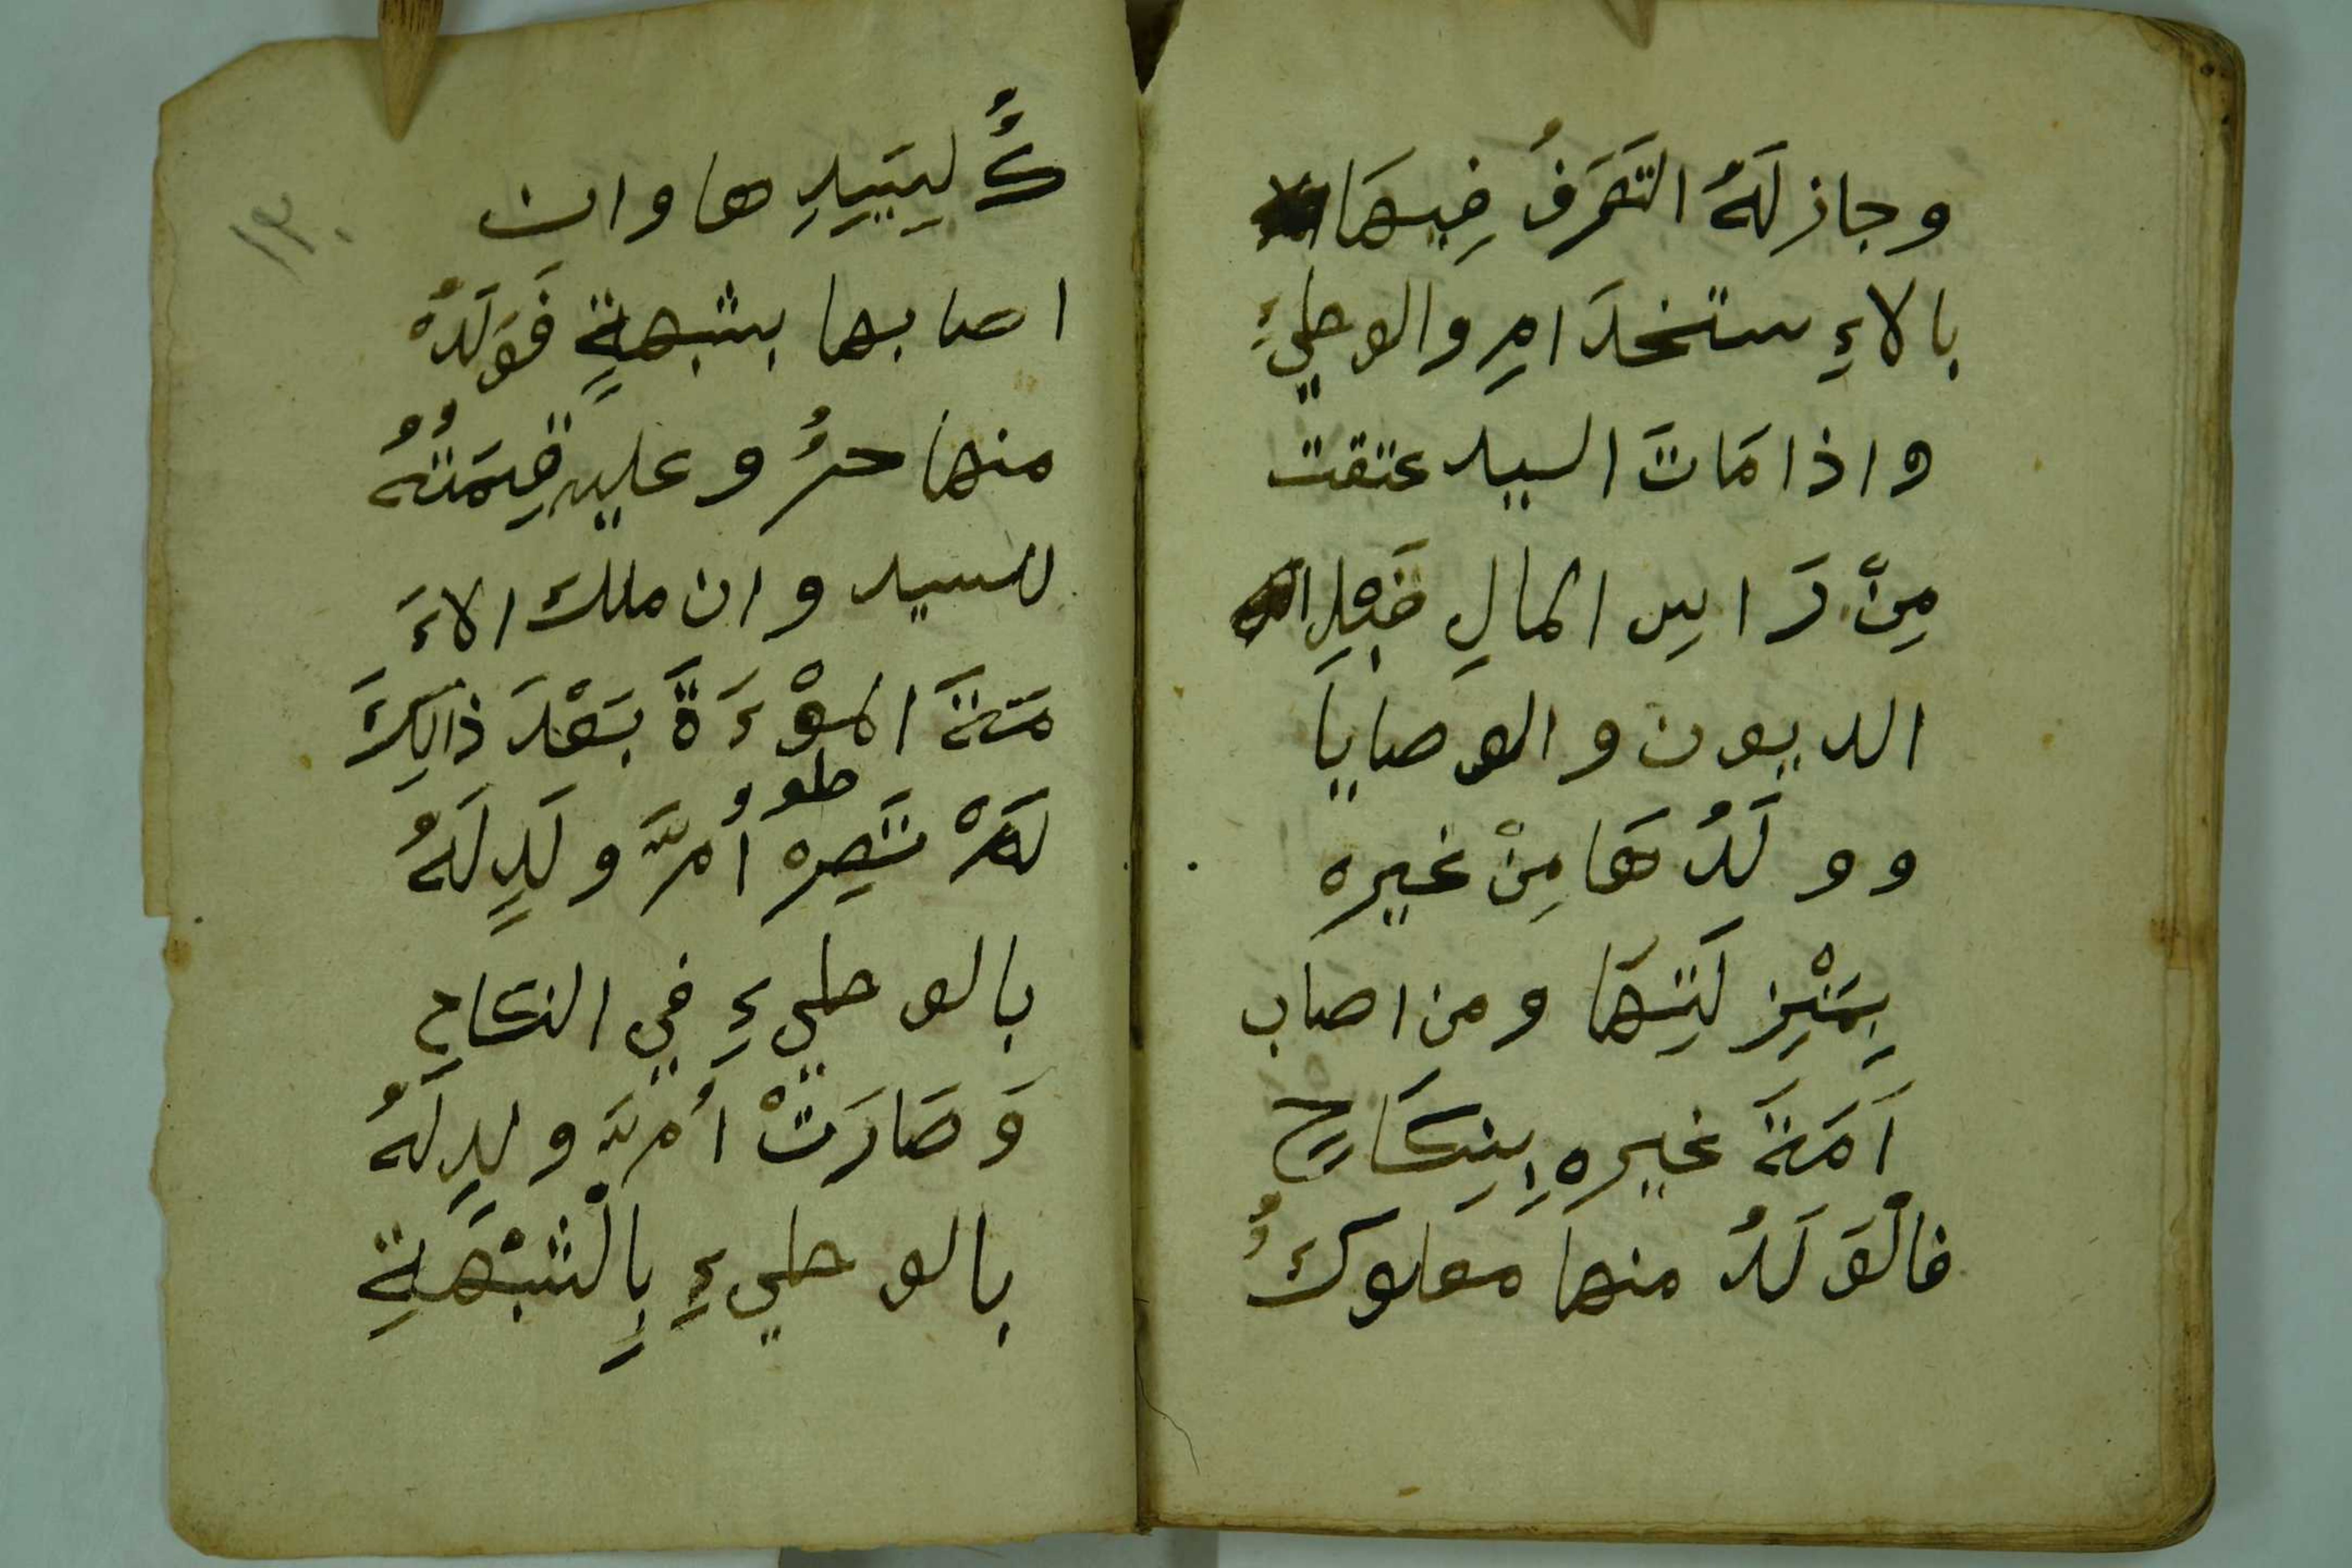 وجاز لَهُ التَصَرفُ فِيهَا
بالاءِ ستخدَامِ والوطيءِ
واذا مَاتَ السيد عتقت
مِنْ رَاسِ المالِ قَبلِ
الديون والوصايا
وولَدُهَا مِنْ غيره
بِمَنْزِلَتِهَا ومن اصاب
اَمَةَ غيرهِ بِنِكَاحٍ
فالْوَلَدُ منها مملوكٌ
كٌ لِسَيِدِها وان
اصابها بشبهةٍ فَوَلَدُه
منها حرٌ وعليه قِيمَتُهُ
للسيد وان ملك الاءَ
مَةَ الموْءَةَ بَعْدَ ذالِكَ
طو
لَمْ تَصِره اُمَّ ولَدٍ لَهُ
بالوطيءِ في النكاحِ
وَصَارَتْ اُمَّ ولدٍ لَهُ
بالوطيءِ بِالْشبْهَةِ
١٣٠